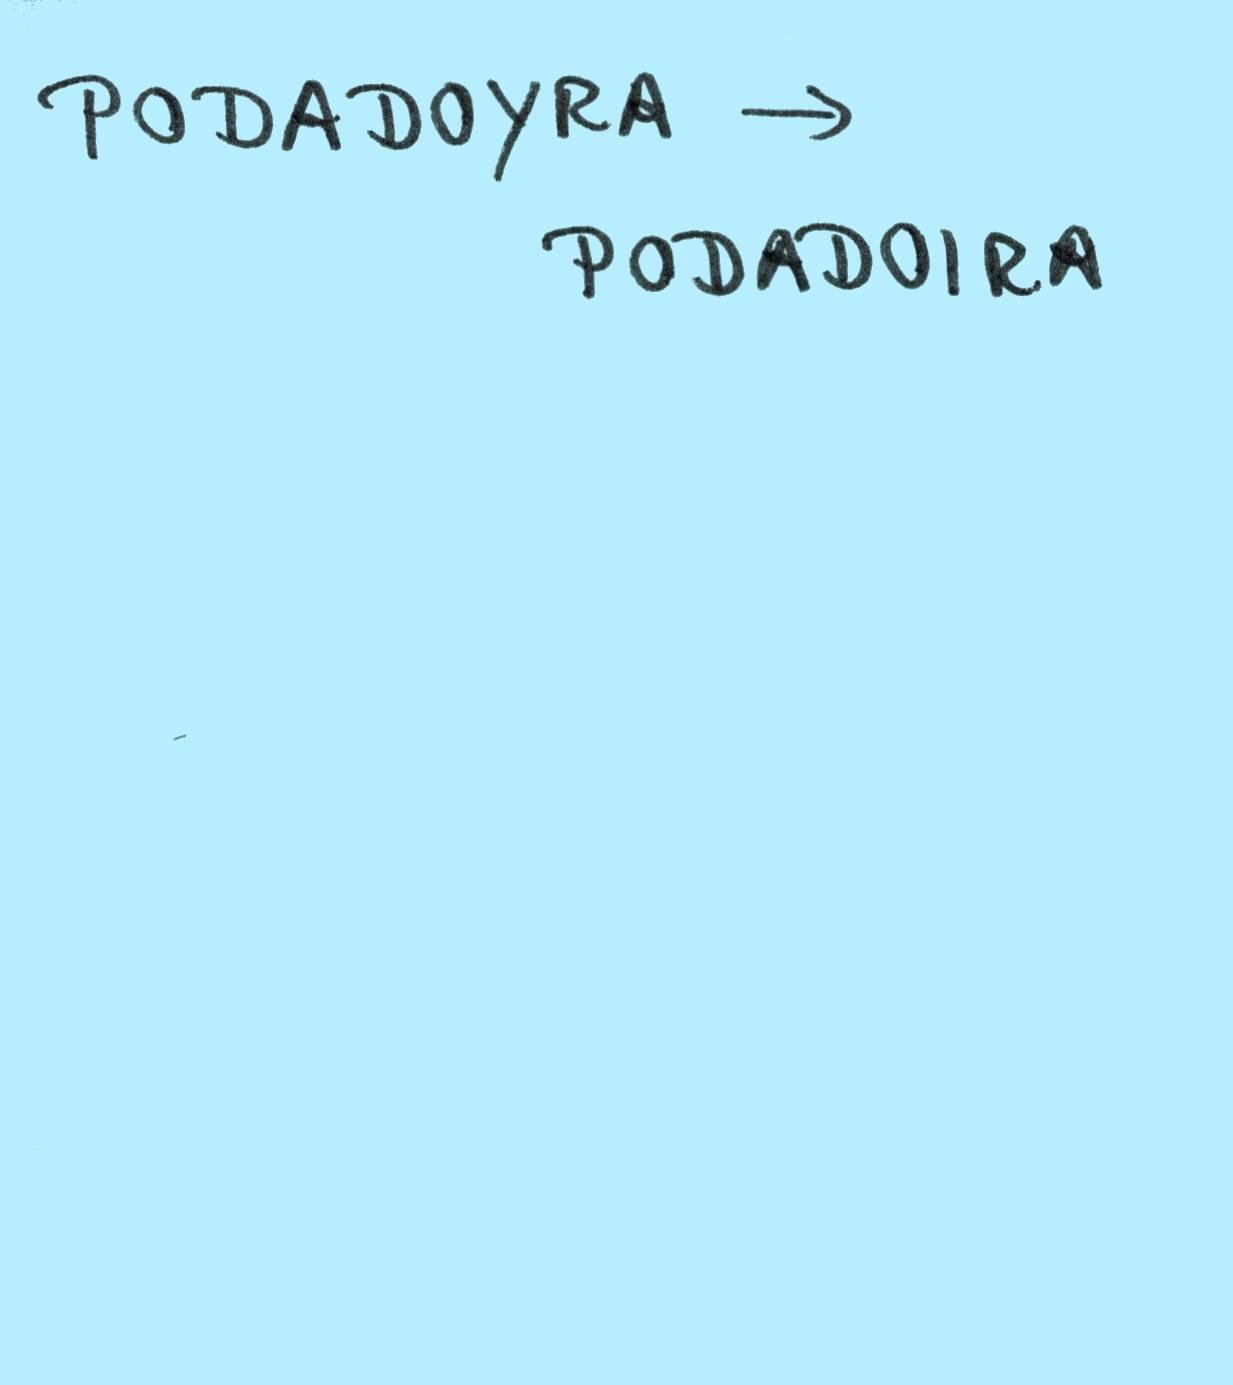 PODADOYRA →
PODADOIRA